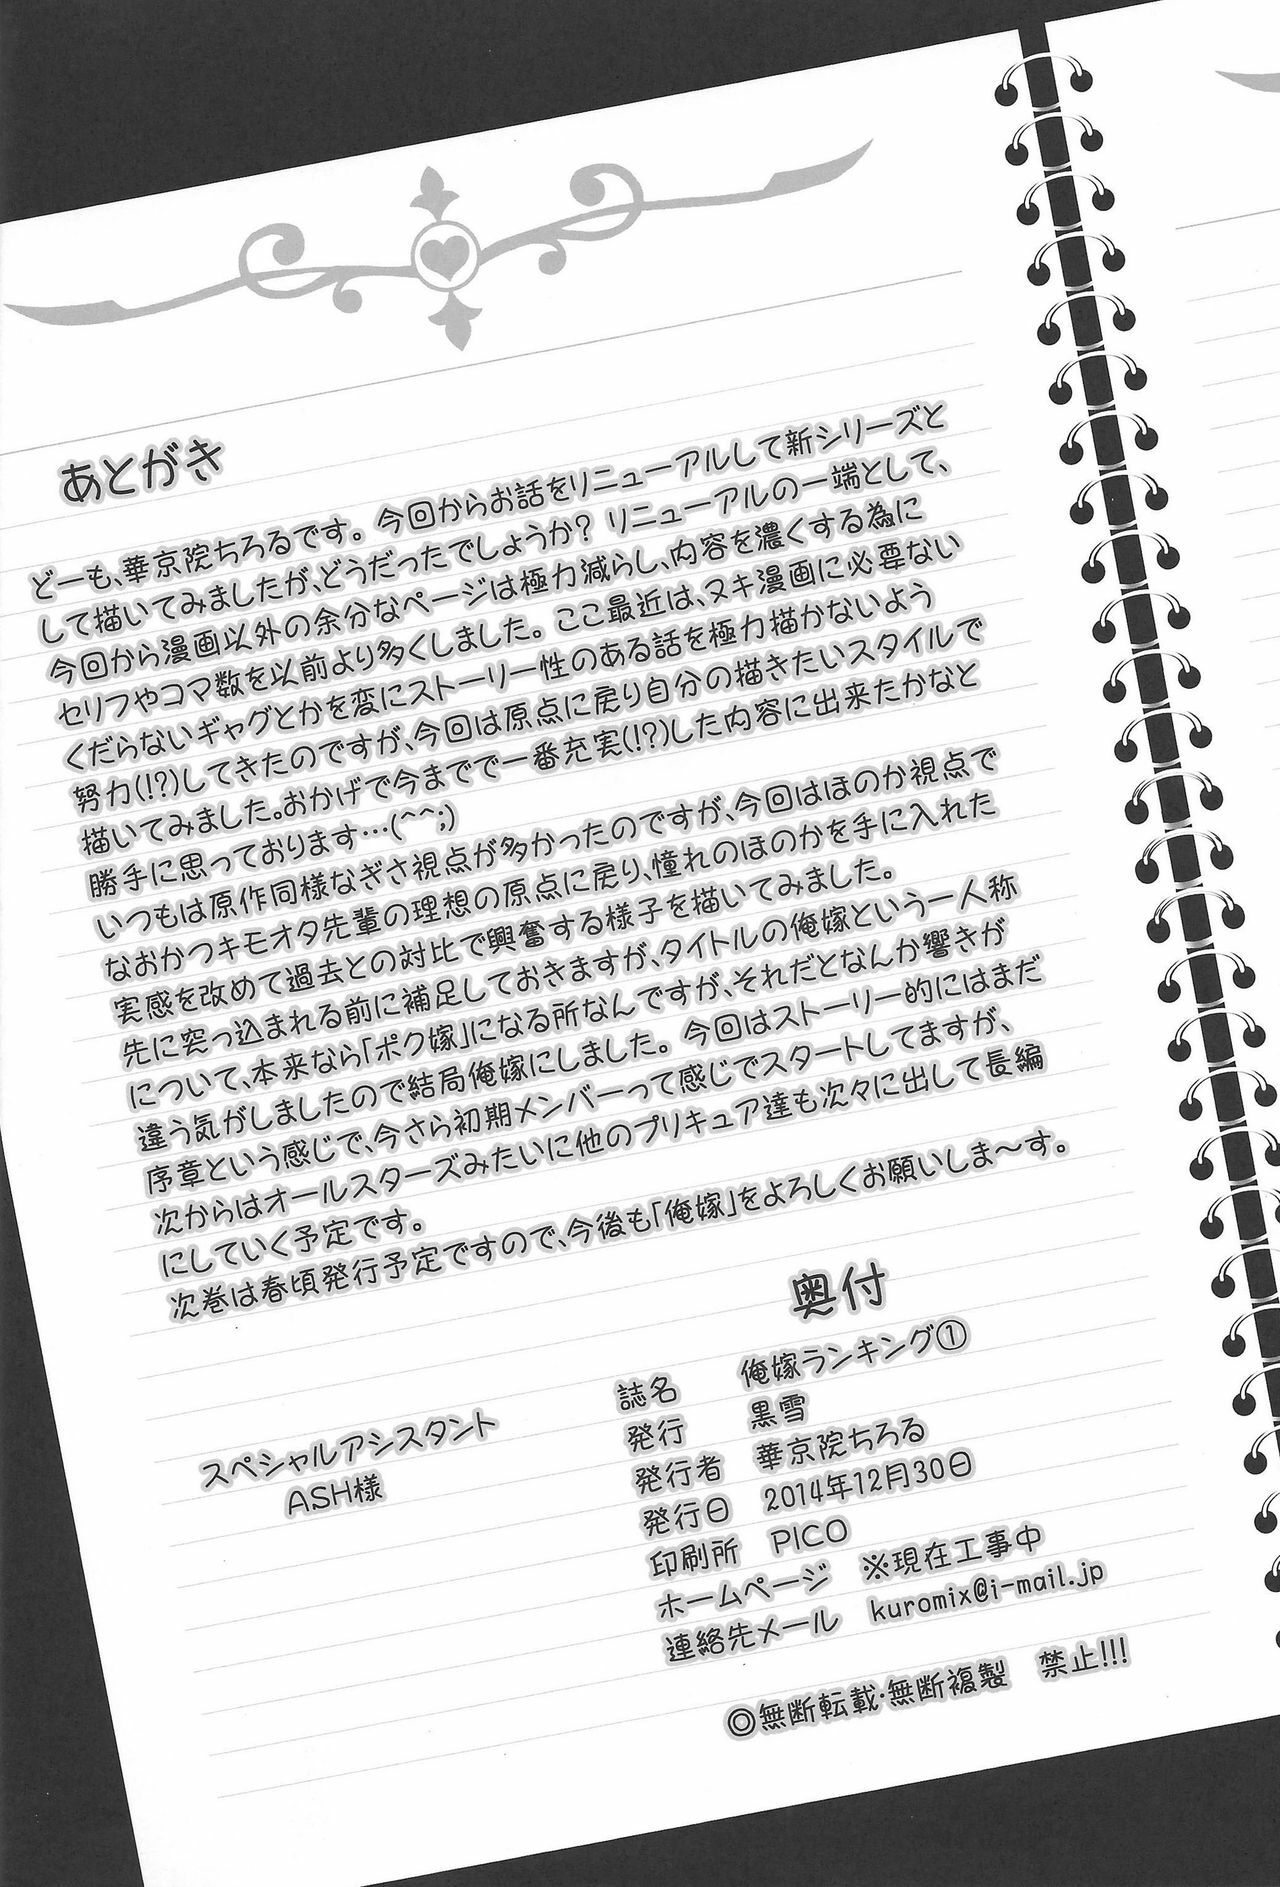 あとがき
どーも、華京院ちろるです。今回からお話をリニューアルして新シリーズと
して描いてみましたが、どうだったでしょうか？リニューアルの一端として、
今回から漫画以外の余分なページは極力減らし、内容を濃くする為に
セリフやコマ数を以前より多くしました。ここ最近は、ヌキ漫画に必要ない
くだらないギャグとかを変にストーリー性のある話を極力描かないよう
努力(!?)してきたのですが、今回は原点に戻り自分の描きたいスタイルで
描いてみました。おかげで今までで一番充実(!?)した内容に出来たかなと
勝手に思っております…(^^;)
いつもは原作同様なぎさ視点が多かったのですが、今回はほのか視点で
なおかつキモオタ先輩の理想の原点に戻り、憧れのほのかを手に入れた
実感を改めて過去との対比で興奮する様子を描いてみました。
先に突っ込まれる前に補足しておきますが、タイトルの俺嫁という一人称
について、本来なら「ボク嫁」になる所なんですが、それだとなんか響きが
違う気がしましたので結局俺嫁にしました。今回はストーリー的にはまだ
序章という感じで、今さら初期メンバーって感じでスタートしてますが、
次からはオールスターズみたいに他のプリキュア達も次々に出して長編
にしていく予定です。
次巻は春頃発行予定ですので、今後も「俺嫁」をよろしくお願いしま～す。
スペシャルアシスタント
ASH様
奥付
誌名 俺嫁ランキング①
発行 黒雪
発行者 華京院ちろる
発行日 2014年12月30日
印刷所 PICO
ホームページ ※現在工事中
連絡先メール kuromix@i-mail.jp
◎無断転載・無断複製 禁止!!!